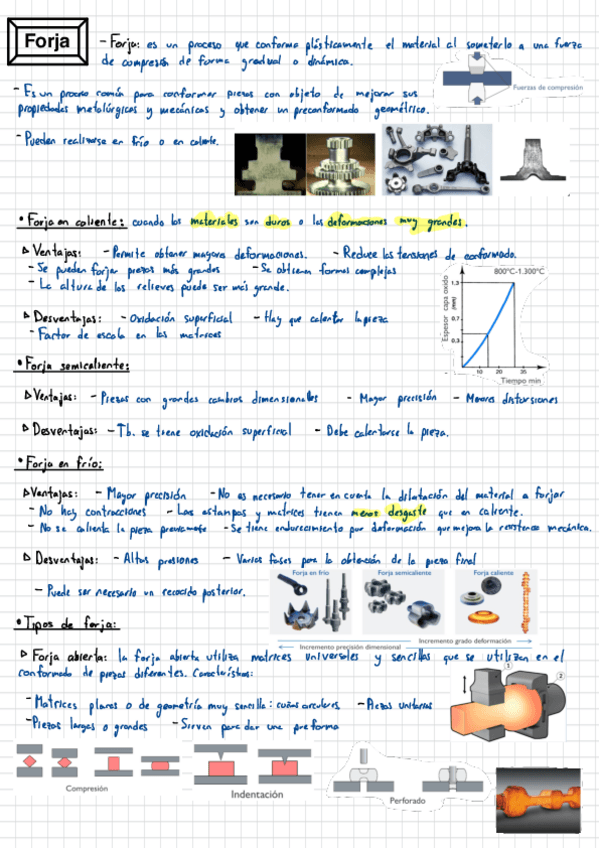 Forja
- Forja: es un proceso que conforma plásticamente el material al someterlo a una fuerza
de compresión de forma gradual o dinámica.
- Es un proceso común para conformar piezas con objeto de mejorar sus
propiedades metalúrgicas y mecánicas y obtener un preconformado geométrico.
Fuerzas de compresión
- Pueden realizarse en frío o en caliente.
• Forja en caliente: cuando los materiales son duros o las deformaciones muy grandes.
▷ Ventajas: - Permite obtener mayores deformaciones. - Reduce las tensiones de conformado.
- Se pueden forjar piezas más grandes - Se obtienen formas complejas
- La altura de los relieves puede ser más grande.
▷ Desventajas: - Oxidación superficial - Hay que calentar la pieza
- Factor de escala en las matrices
800°C-1.300°C
Espesor capa oxido (mm)
1.3
0.7
0.3
10 20 35
Tiempo min
• Forja semicaliente:
▷ Ventajas: - Piezas con grandes cambios dimensionales - Mayor precisión - Menores distorsiones
▷ Desventajas: - Tb. se tiene oxidación superficial - Debe calentarse la pieza.
• Forja en frío:
▷ Ventajas: - Mayor precisión - No es necesario tener en cuenta la dilatación del material a forjar
- No hay contracciones - Las estampas y matrices tienen menos desgaste que en caliente.
- No se calienta la pieza previamente - Se tiene endurecimiento por deformación que mejora la resistencia mecánica.
▷ Desventajas: - Altas presiones - Varias fases para la obtención de la pieza final
- Puede ser necesario un recocido posterior.
Forja en frío Forja semicaliente Forja caliente
Incremento grado deformación
Incremento precisión dimensional
• Tipos de forja:
▷ Forja abierta: la forja abierta utiliza matrices universales y sencillas que se utilizan en el
conformado de piezas diferentes. Características:
- Matrices planas o de geometría muy sencilla: cuñas circulares - Piezas unitarias
- Piezas largas o grandes - Sirven para dar una preforma
1
2
Compresión
Indentación
Perforado